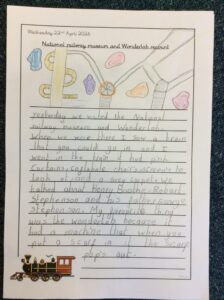 Wednesday 22nd April 2026
National railway museum and Wonderlab recount
Yesterday we visited the National
railway museum and Wonderlab.
When we were there I saw a train
that you could go in and I
went in the train it had pink
curtains,
look at
talked about Henry Booth, Robert
Stephenson and his father George
Stephenson. My favourite thing
was the Wonderlab because it
had a machine that when you
put a scarf in it the scarf
pops out.